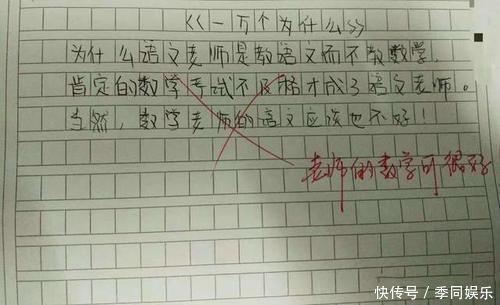 《一万个为什么》
为什么语文老师是教语文而不教数学,
肯定的数学考试不及格才成了语文老师。
当然，数学老师的语文应该也不好！
老师的数学可很好
快传号／季同娱乐